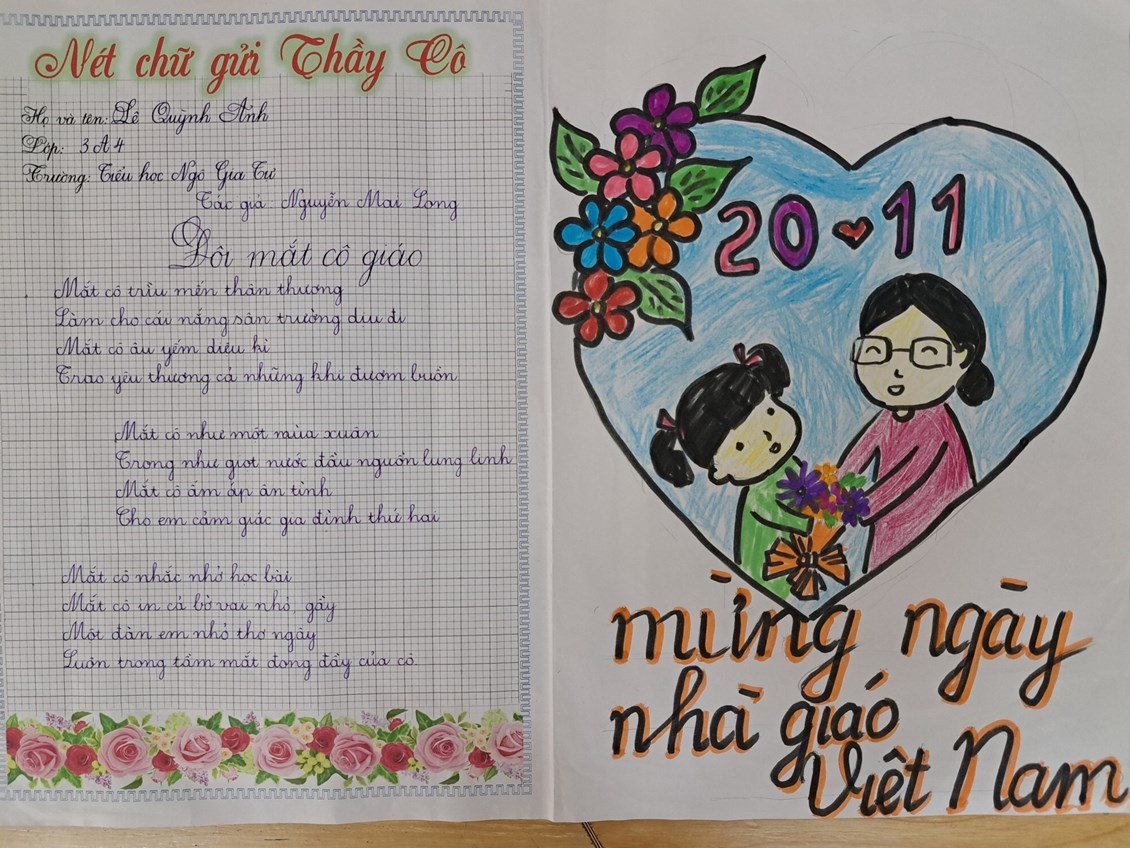 Nét chữ gửi Thầy Cô
Họ và tên: Lê Quỳnh Anh
Lớp: 3A4
Trường: Tiểu học Ngô Gia Tự
Tác giả: Nguyễn Mai Long
Đôi mắt cô giáo
Mắt cô trìu mến thân thương
Làm cho cái nắng sân trường dịu đi
Mắt cô âu yếm diệu kì
Trao yêu thương cả những khi đượm buồn
Mắt cô như một mùa xuân
Trong như giọt nước đầu nguồn lung linh
Mắt cô ấm áp ân tình
Cho em cảm giác gia đình thứ hai
Mắt cô nhắc nhở học bài
Mắt cô in cả bờ vai nhỏ, gầy
Một đàn em nhỏ thơ ngây
Luôn trong tầm mắt đong đầy của cô.
20 11
mừng ngày
nhà giáo
Việt Nam